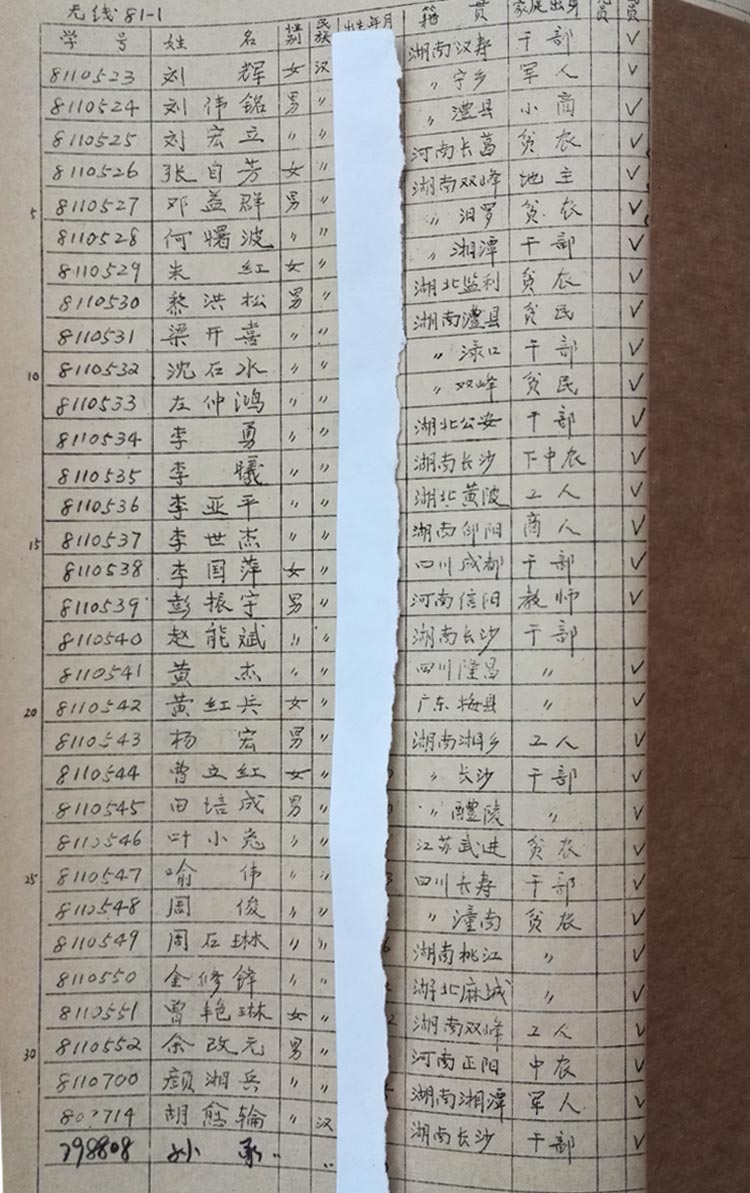 无线81-1
学号 姓名 性别 民族 出生年月 籍贯 家庭出身 员 员
8110523 刘辉 女 汉 湖南汉寿 干部 ✓
8110524 刘伟铭 男 〃 〃 宁乡 军人 ✓
8110525 刘宏立 〃 〃 〃 澧县 小商 ✓
8110526 张自芳 女 〃 河南长葛 贫农 ✓
5 8110527 邓益群 男 〃 湖南双峰 地主 ✓
8110528 何曙波 〃 〃 〃 汨罗 贫农 ✓
8110529 朱红 女 〃 〃 湘潭 干部 ✓
8110530 黎洪松 男 〃 湖北监利 贫农 ✓
8110531 梁开喜 〃 〃 湖南澧县 贫民 ✓
10 8110532 沈石水 〃 〃 〃 渌口 干部 ✓
8110533 左仲鸿 〃 〃 〃 双峰 贫民 ✓
8110534 李勇 〃 〃 湖北公安 干部 ✓
8110535 李曦 〃 〃 湖南长沙 下中农 ✓
8110536 李亚平 〃 〃 湖北黄陂 工人 ✓
15 8110537 李世杰 〃 〃 湖南邵阳 商人 ✓
8110538 李国萍 女 〃 四川成都 干部 ✓
8110539 彭振宇 男 〃 河南信阳 教师 ✓
8110540 赵能斌 〃 〃 湖南长沙 干部
8110541 黄杰 〃 〃 四川隆昌 〃 ✓
20 8110542 黄红兵 女 〃 广东梅县 〃 ✓
8110543 杨宏 男 〃 湖南湘乡 工人 ✓
8110544 曹立红 女 〃 〃 长沙 干部 ✓
8110545 田培成 男 〃 〃 醴陵 〃 ✓
8110546 叶小兔 〃 〃 江苏武进 贫农 ✓
25 8110547 喻伟 〃 〃 四川长寿 干部 ✓
8110548 周俊 〃 〃 〃 潼南 贫农 ✓
8110549 周石琳 〃 〃 湖南桃江 〃 ✓
8110550 金修锋 〃 〃 湖北麻城 〃 ✓
8110551 曾艳琳 女 〃 湖南双峰 工人 ✓
30 8110552 余改元 男 〃 河南正阳 中农 ✓
8110700 颜湘兵 〃 〃 湖南湘潭 军人 ✓
胡愈輪 〃 汉 湖南长沙 干部 ✓
798808 孙承 〃 〃